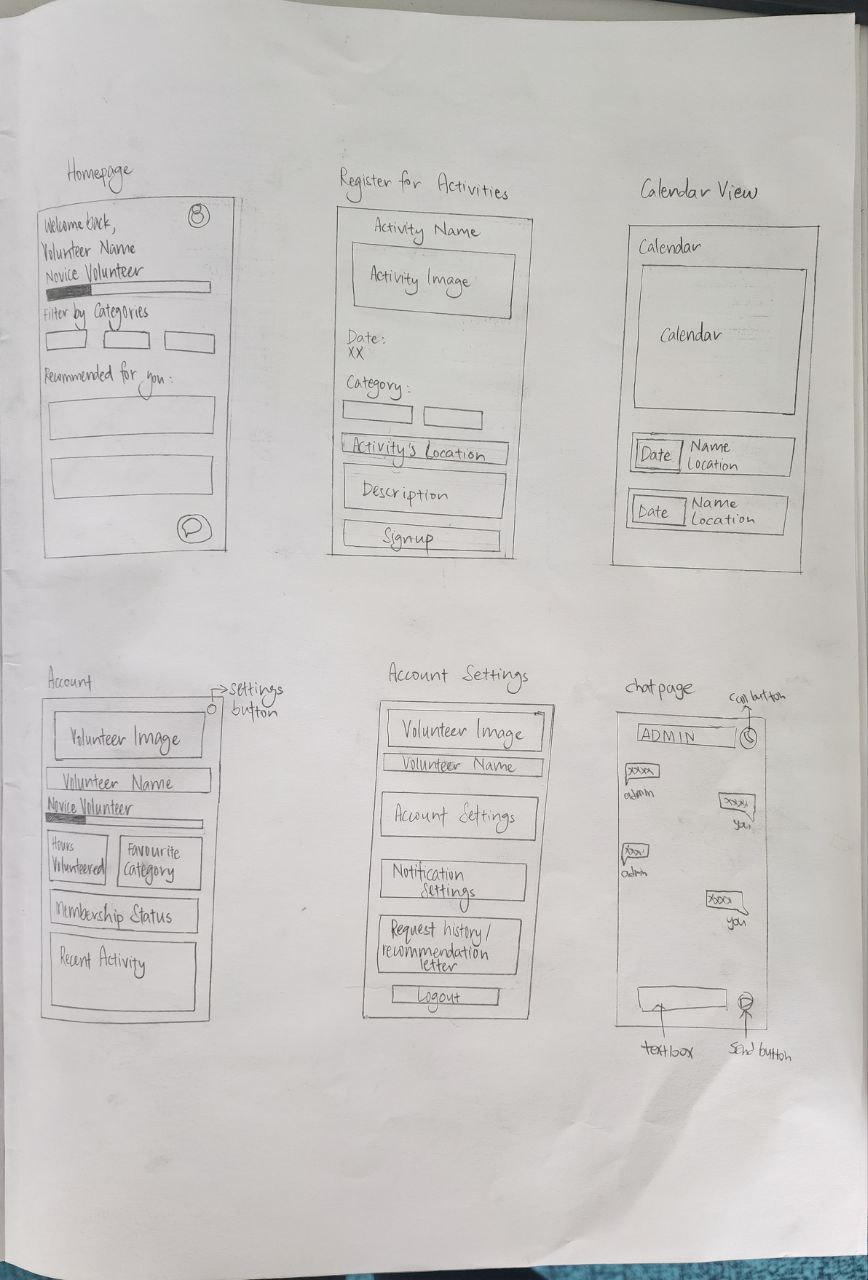 Homepage
Welcome back,
Volunteer Name
Novice Volunteer
Filter by Categories
Recommended for you:
Register for Activities
Activity Name
Activity Image
Date:
XX
Category:
Activity's Location
Description
Signup
Calendar View
Calendar
Calendar
Date
Name
Location
Date
Name
Location
Account
settings
button
Volunteer Image
Volunteer Name
Novice Volunteer
Hours
Volunteered
Favourite
Category
Membership Status
Recent Activity
Account Settings
Volunteer Image
Volunteer Name
Account Settings
Notification
Settings
Request history/
recommendation
letter
Logout
chatpage
call button
ADMIN
xxxx
admin
xxxx
you
xxx
admin
xxxx
you
textbox
send button